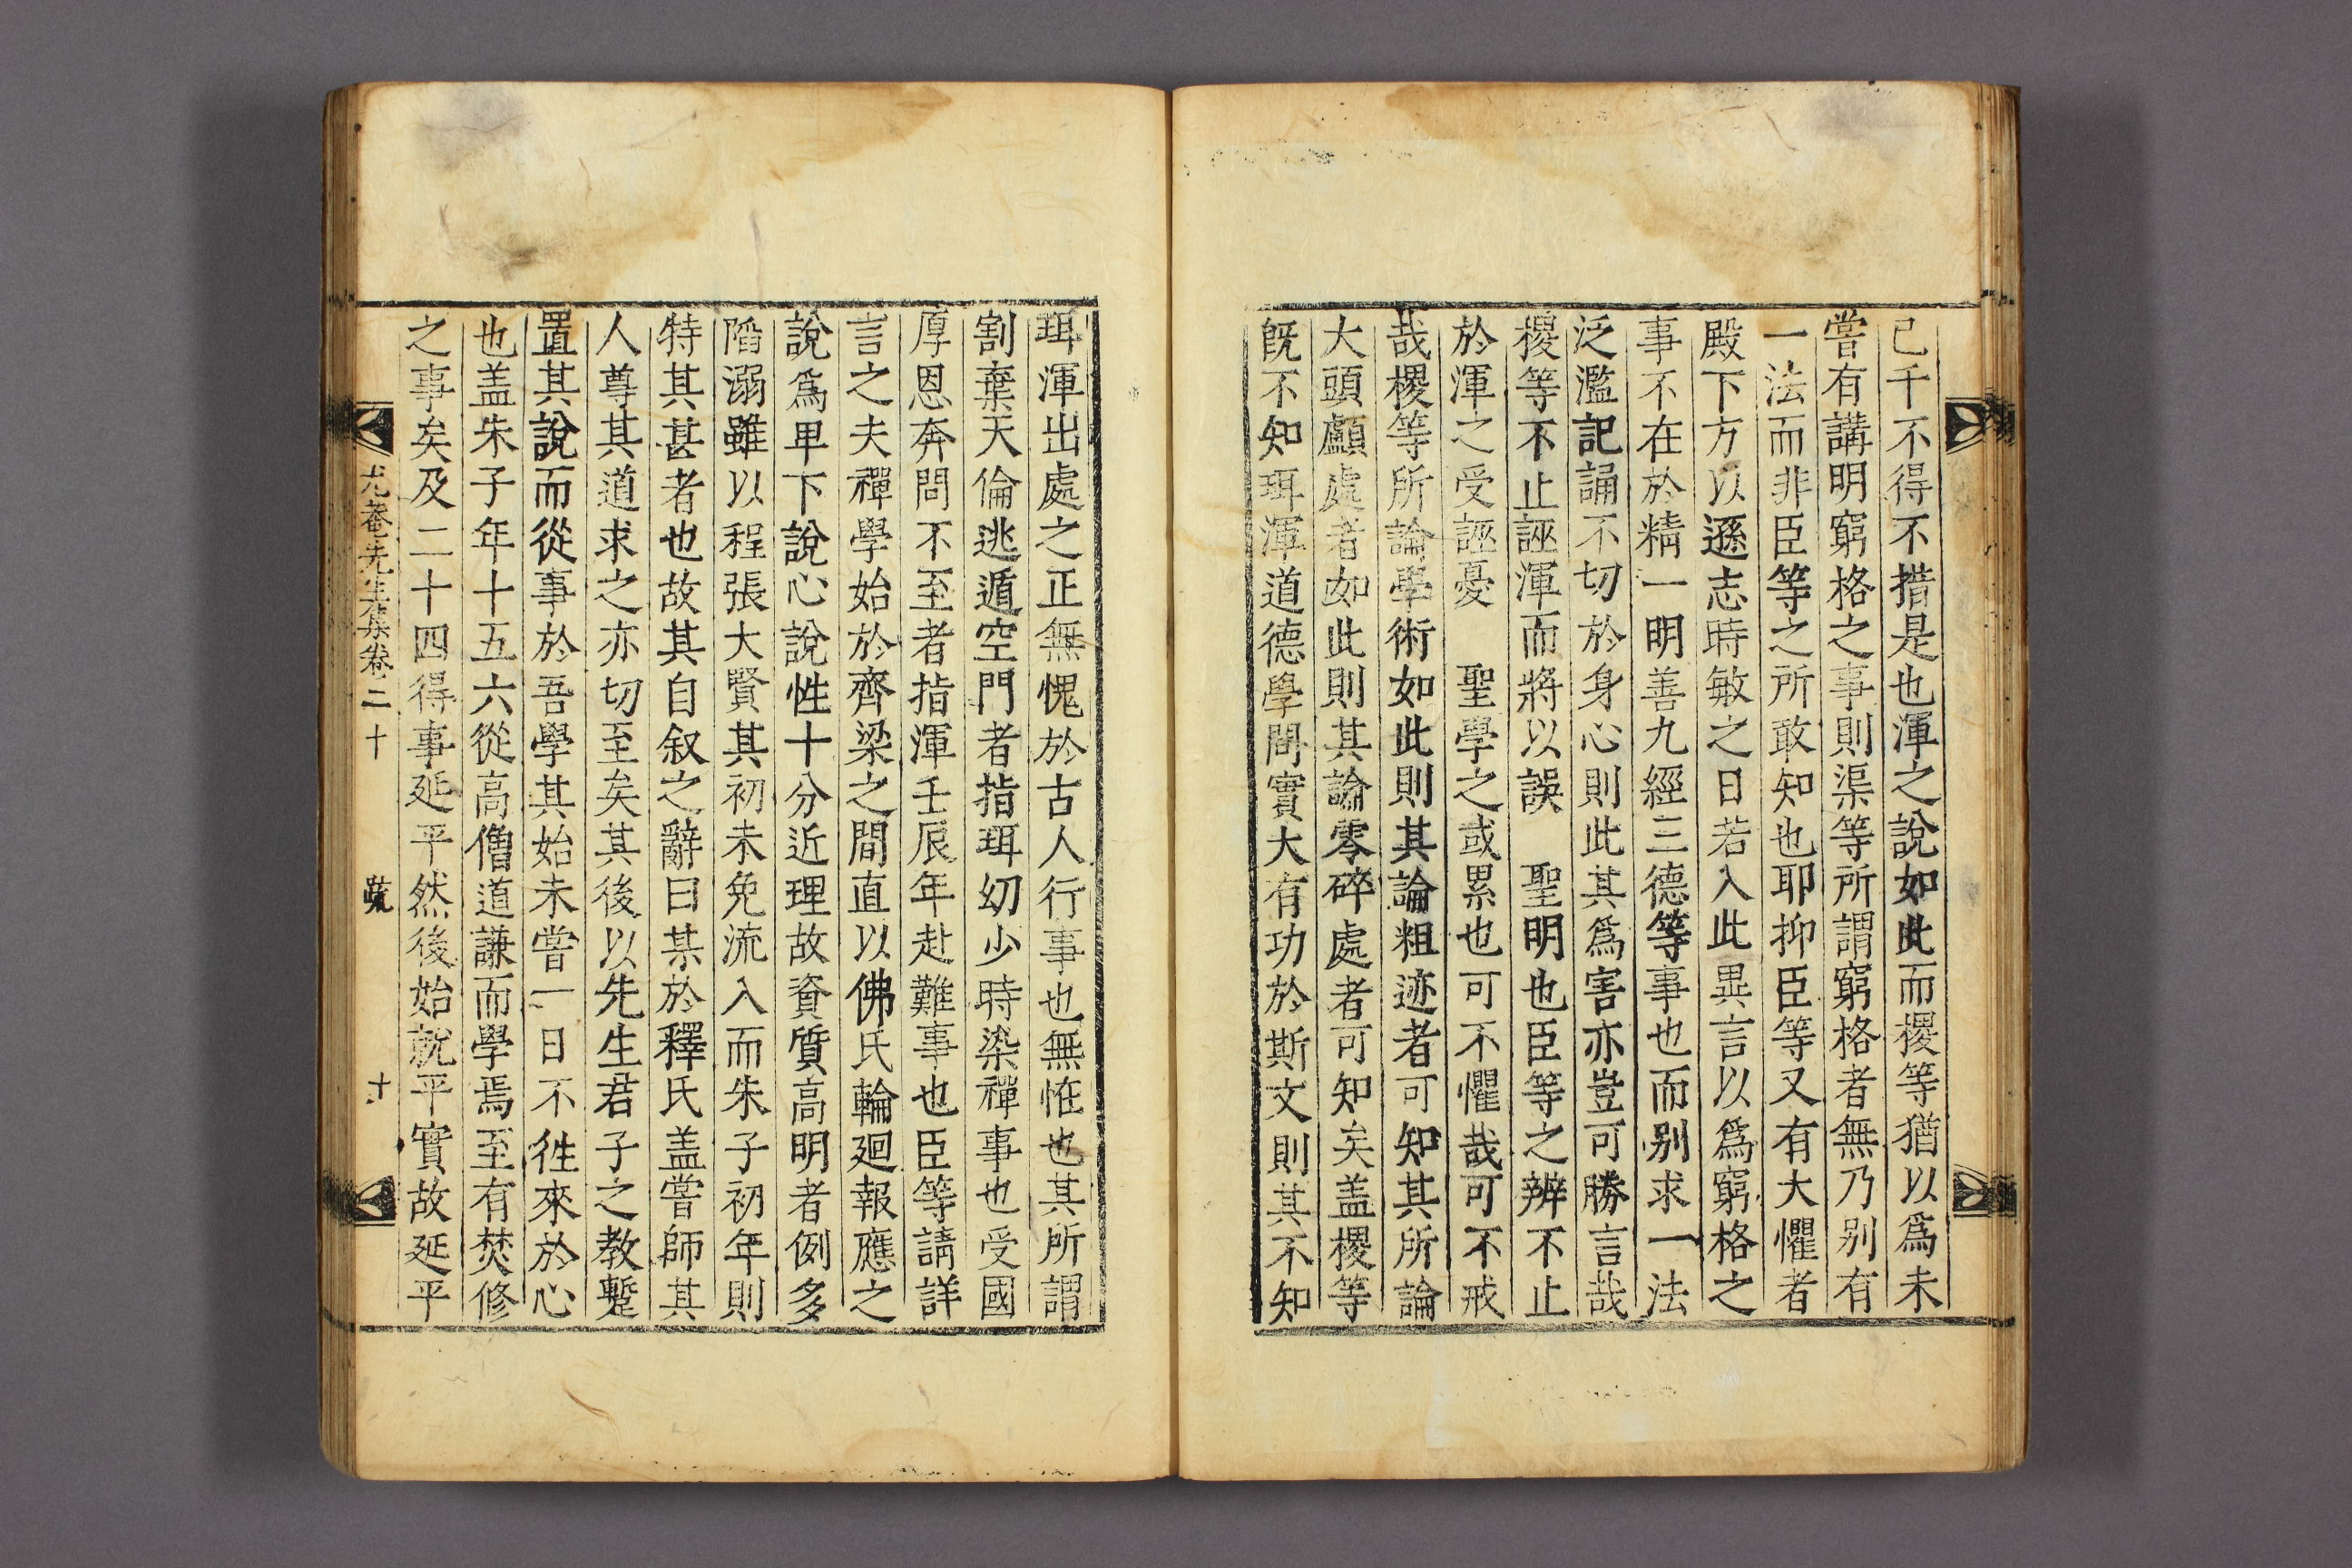 己千不得不措是也渾之說如此而㮨等猶以爲未
嘗有講明窮格之事則渠等所謂窮格者無乃别有
一法而非臣等之所敢知也耶抑臣等又有大懼者
殿下方以遜志時敏之日若入此異言以爲窮格之
事不在於精一明善九經三德等事也而别求一法
泛濫記誦不切於身心則此其爲害亦豈可勝言哉
㮨等不止誣渾而將以誤　聖明也臣等之辨不止
於渾之受誣憂　聖學之或累也可不懼哉可不戒
哉㮨等所論學術如此則其論粗迹者可知其所論
大頭顱處者如此則其論零碎處者可知矣盖㮨等
旣不知珥渾道德學問實大有功於斯文則其不知
珥渾出處之正無愧於古人行事也無恠也其所謂
割棄天倫逃遁空門者指珥幼少時染禪事也受國
厚恩奔問不至者指渾壬辰年赴難事也臣等請詳
言之夫禪學始於齊梁之間直以佛氏輪廻報應之
說爲卑下說心說性十分近理故資質高明者例多
陷溺雖以程張大賢其初未免流入而朱子初年則
特其甚者也故其自叙之辭曰某於釋氏盖嘗師其
人尊其道求之亦切至矣其後以先生君子之教蹔
置其說而從事於吾學其始未嘗一日不徃來於心
也盖朱子年十五六從高僧道謙而學焉至有焚修
之事矣及二十四得事延平然後始就平實故延平
尤菴先生集卷二十　疏　十